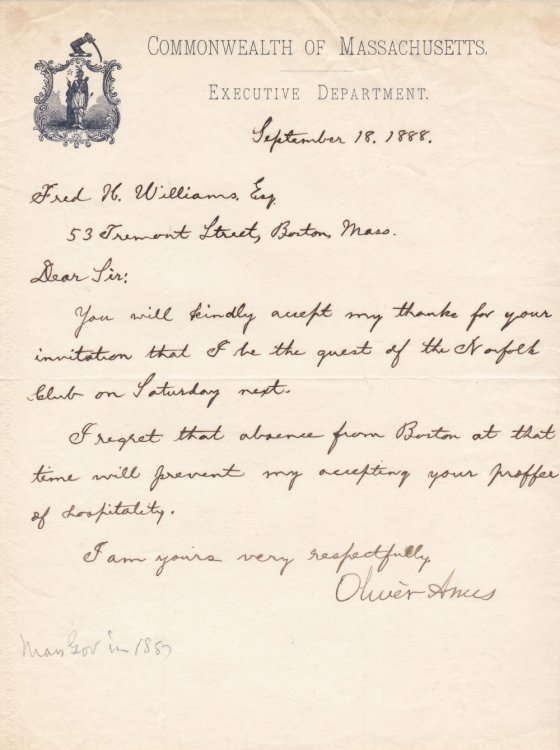 COMMONWEALTH OF MASSACHUSETTS.
EXECUTIVE DEPARTMENT.
September 18, 1888.
Fred H. Williams, Esq.
53 Tremont Street, Boston, Mass.
Dear Sir:
You will kindly accept my thanks for your
invitation that I be the guest of the Norfolk
Club on Saturday next.
I regret that absence from Boston at that
time will prevent my accepting your proffer
of hospitality.
I am yours very respectfully,
Oliver Ames
Mass Gov in 1887